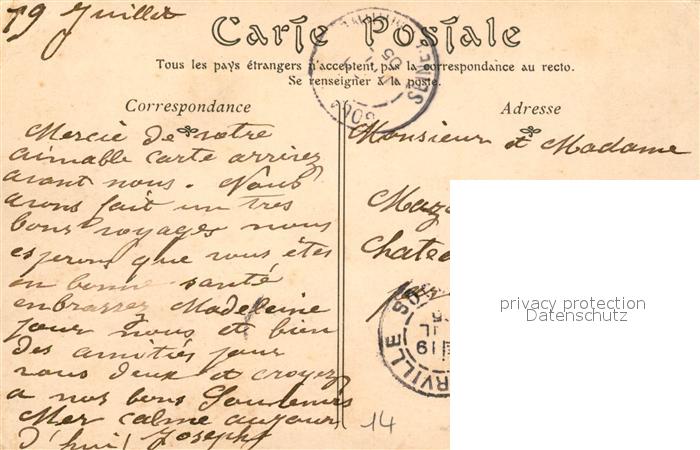 19 Juillet
Carte Postale
Tous les pays étrangers n'acceptent pas la correspondance au recto.
Se renseigner à la poste.
Correspondance
Adresse
Mercie de votre
aimable carte arrivez
avant nous. Nous
avons fait un tres
bons voyages nous
esperons que vous êtes
en bonne santé
enbrassez Madeleine
pour nous et bien
des amitiés pour
vous deux et croyez
a nos bons Souvenirs
Mer calme aujour
d'hui Joseph
Monsieur et Madame
Maz
Chate
par
14
19
RVILLE
SEINE
privacy protection
Datenschutz